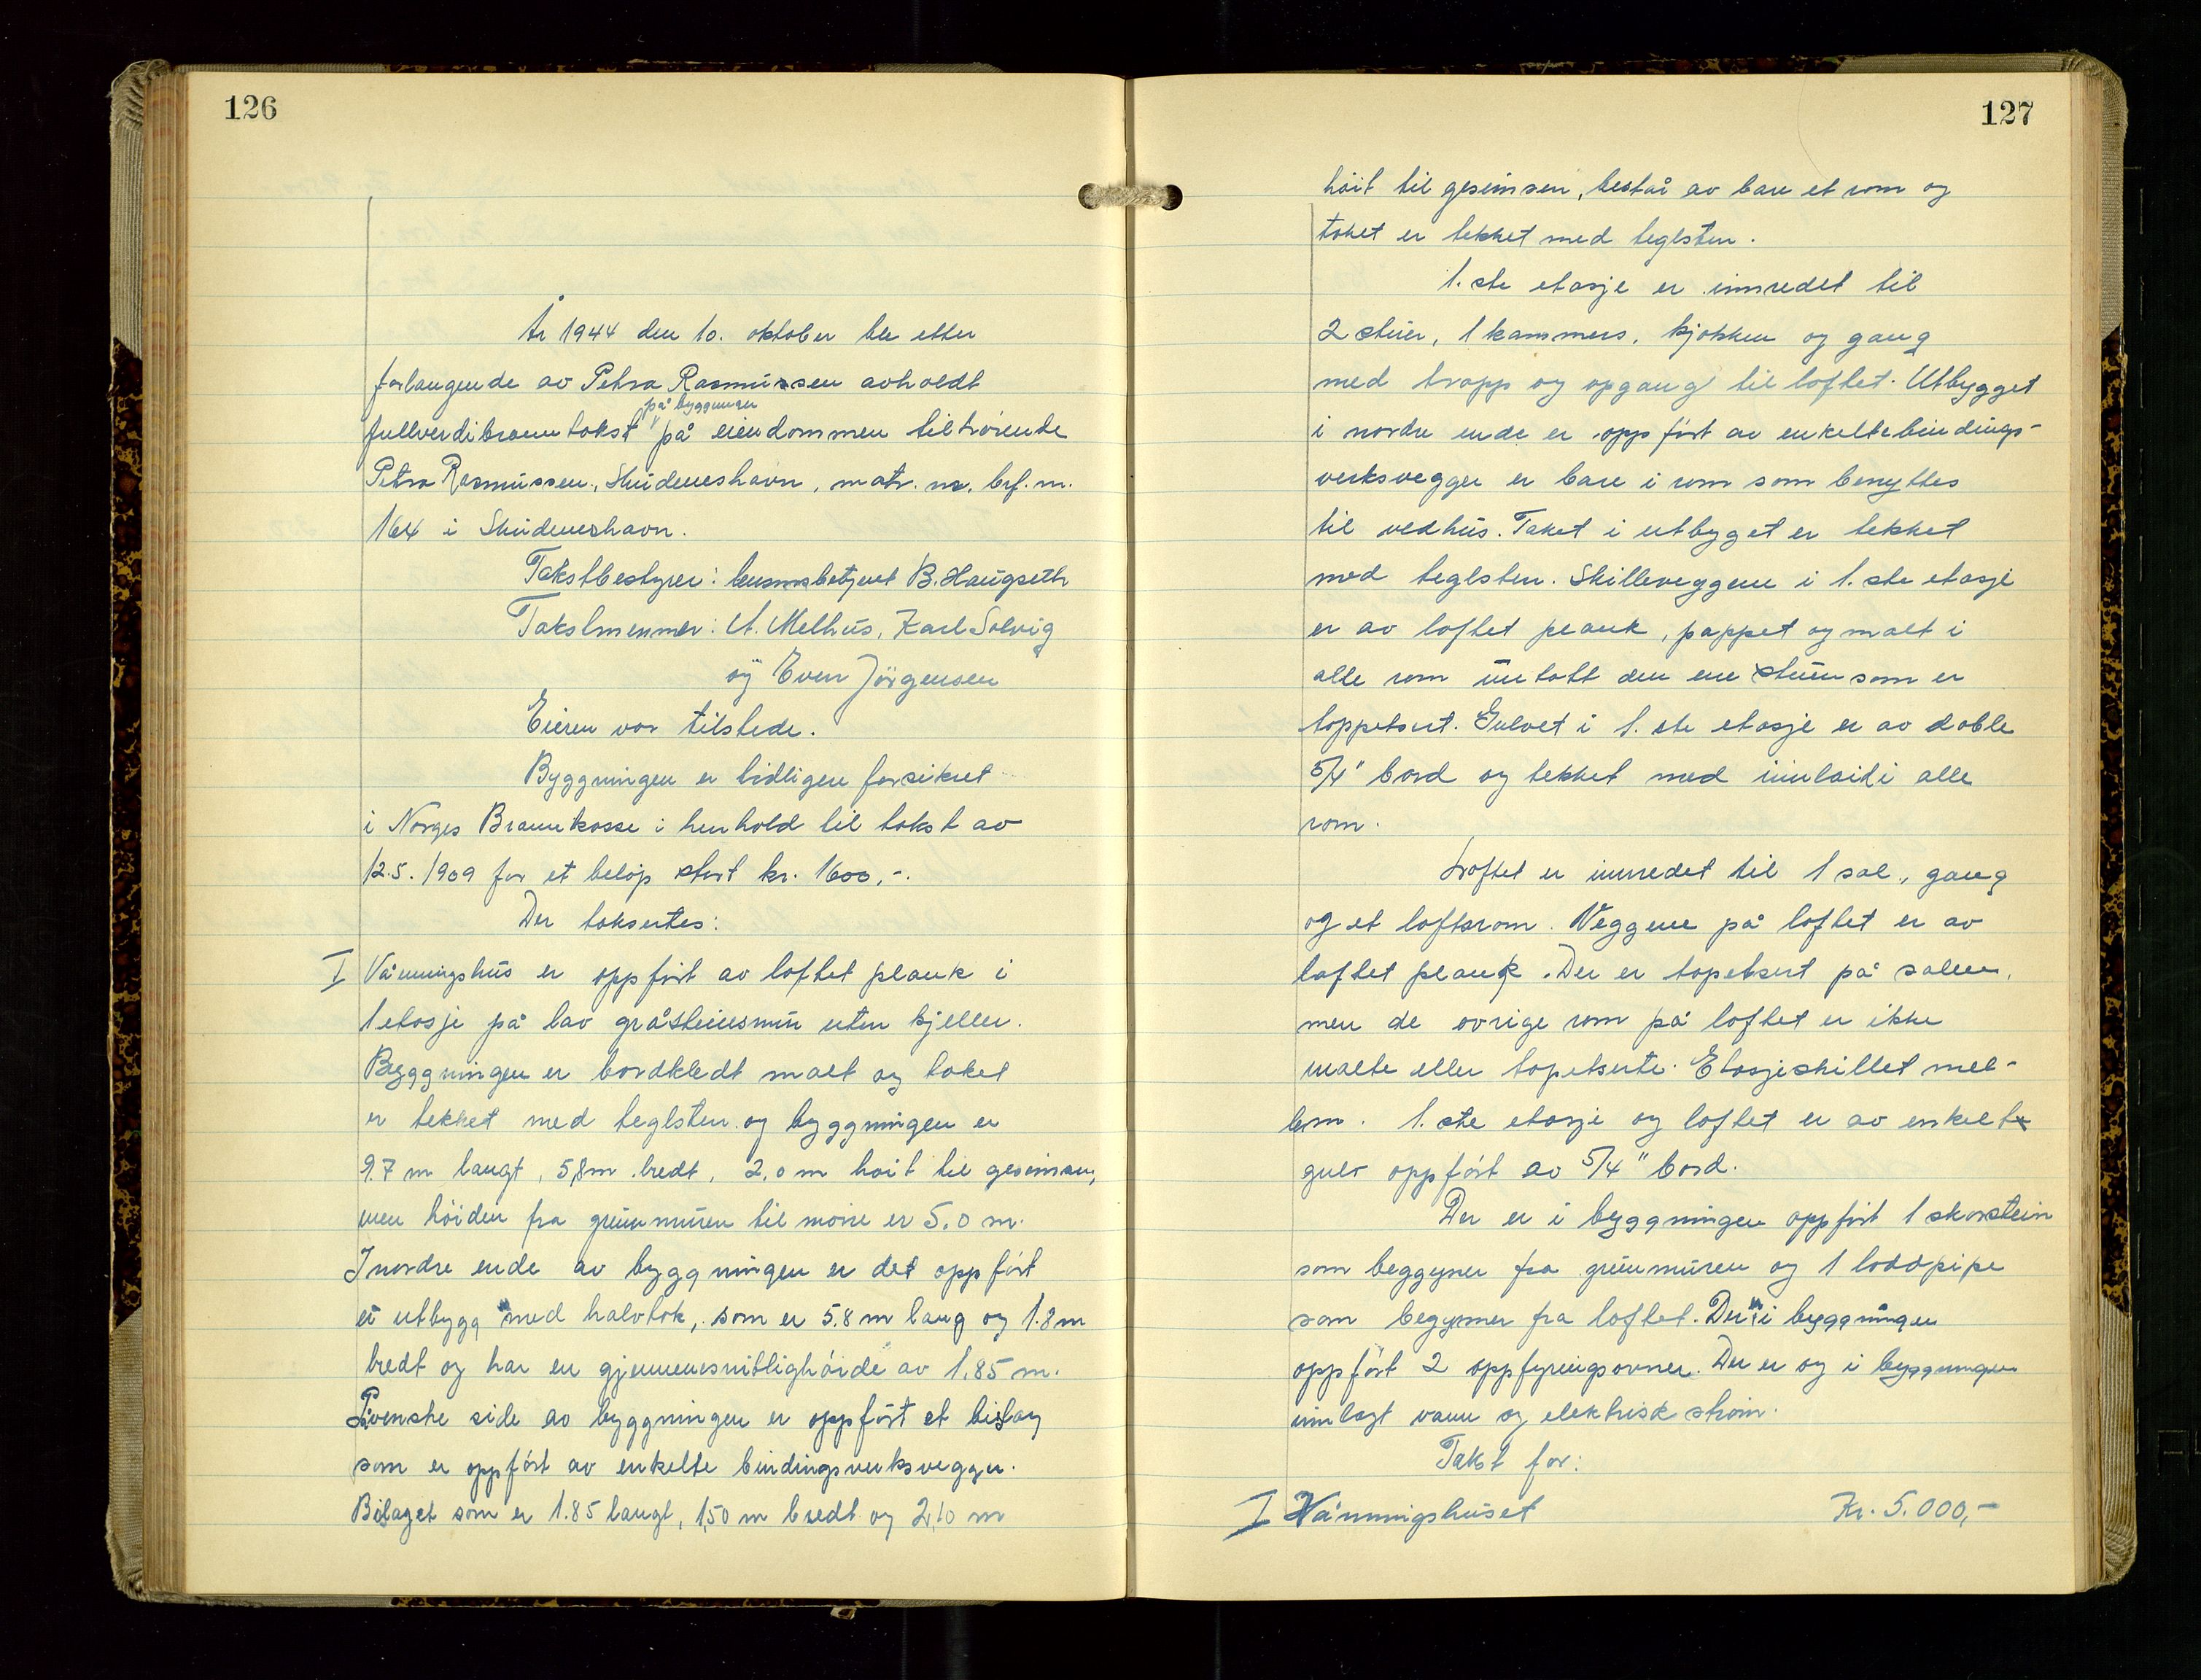 126
År 1944 den 10. oktober ble etter
forlangende av Petra Rasmussen avholdt
på bygningen
fullverdibranntakst på eiendommen tilhörende
Petra Rasmussen, Skudeneshavn, matr. nr. brf. nr.
164 i Skudeneshavn.
Takstbestyrer: lensmsbetjent B. Haugseth
Takstmenner: A. Melhus, Karl Solvig
og Even Jörgensen
Eieren var tilstede.
Byggningen er tidligere forsikret
i Norges Brannkasse i henhold til takst av
12.5.1909 for et belöp stort kr. 1600,-.
Der taksertes:
I Våningshus er oppfört av laftet plank i
1 etasje på lav gråsteinsmur uten kjeller.
Byggningen er bordkledt malt og taket
er tekket med teglsten og byggningen er
9.7 m langt, 5,8 m bredt, 2,0 m høit til gesimsen,
men höiden fra grunnmuren til möne er 5,0 m.
I nordre ende av byggningen er det oppfört
et utbygg med halvtak, som er 5.8 m lang og 1.8 m
bredt og har en gjennensnitlighöide av 1,85 m.
På venstre side av byggningen er oppfört et bislag
som er oppfört av enkelte bindingsverksvegger.
Bilaget som er 1.85 langt, 1,50 m bredt og 2,10 m
127
höit til gesimsen, består av bare et rom og
taket er tekket med teglsten.
1.ste etasje er innredet til
2 stuer, 1 kammers, kjökken og gang
med trapp og opgang til loftet. Utbygget
i nordre ende er oppfört av enkeltebindings-
verksvegger er bare i rom som benyttes
til vedhus. Taket i utbyget er tekket
med teglsten. Skilleveggene i 1.ste etasje
er av laftet plank, pappet og malt i
alle rom untatt den ene stuen som er
tappetsert. Gulvet i 1.ste etasje er av doble
5/4" bord og tekket med innlaid i alle
rom.
Loftet er innredet til 1 sal, gang
og et loftsrom. Veggene på loftet er av
laftet plank. Der er tapetsert på salen,
men de övrige rom på loftet er ikke
malte eller tapetserte. Etasjeskillet mel-
lem 1.ste etasje og loftet er av enkelt
gulv oppfört av 5/4" bord.
Der er i byggningen oppfört 1 skorstein
som beggyner fra grunnmuren og 1 loddpipe
som begynner fra loftet. Der er i byggningen
oppfört 2 oppfyringsovner. Der er og i byggningen
innlagt vann og elektrisk ström.
Takst for:
I Våningshuset Kr. 5.000,-